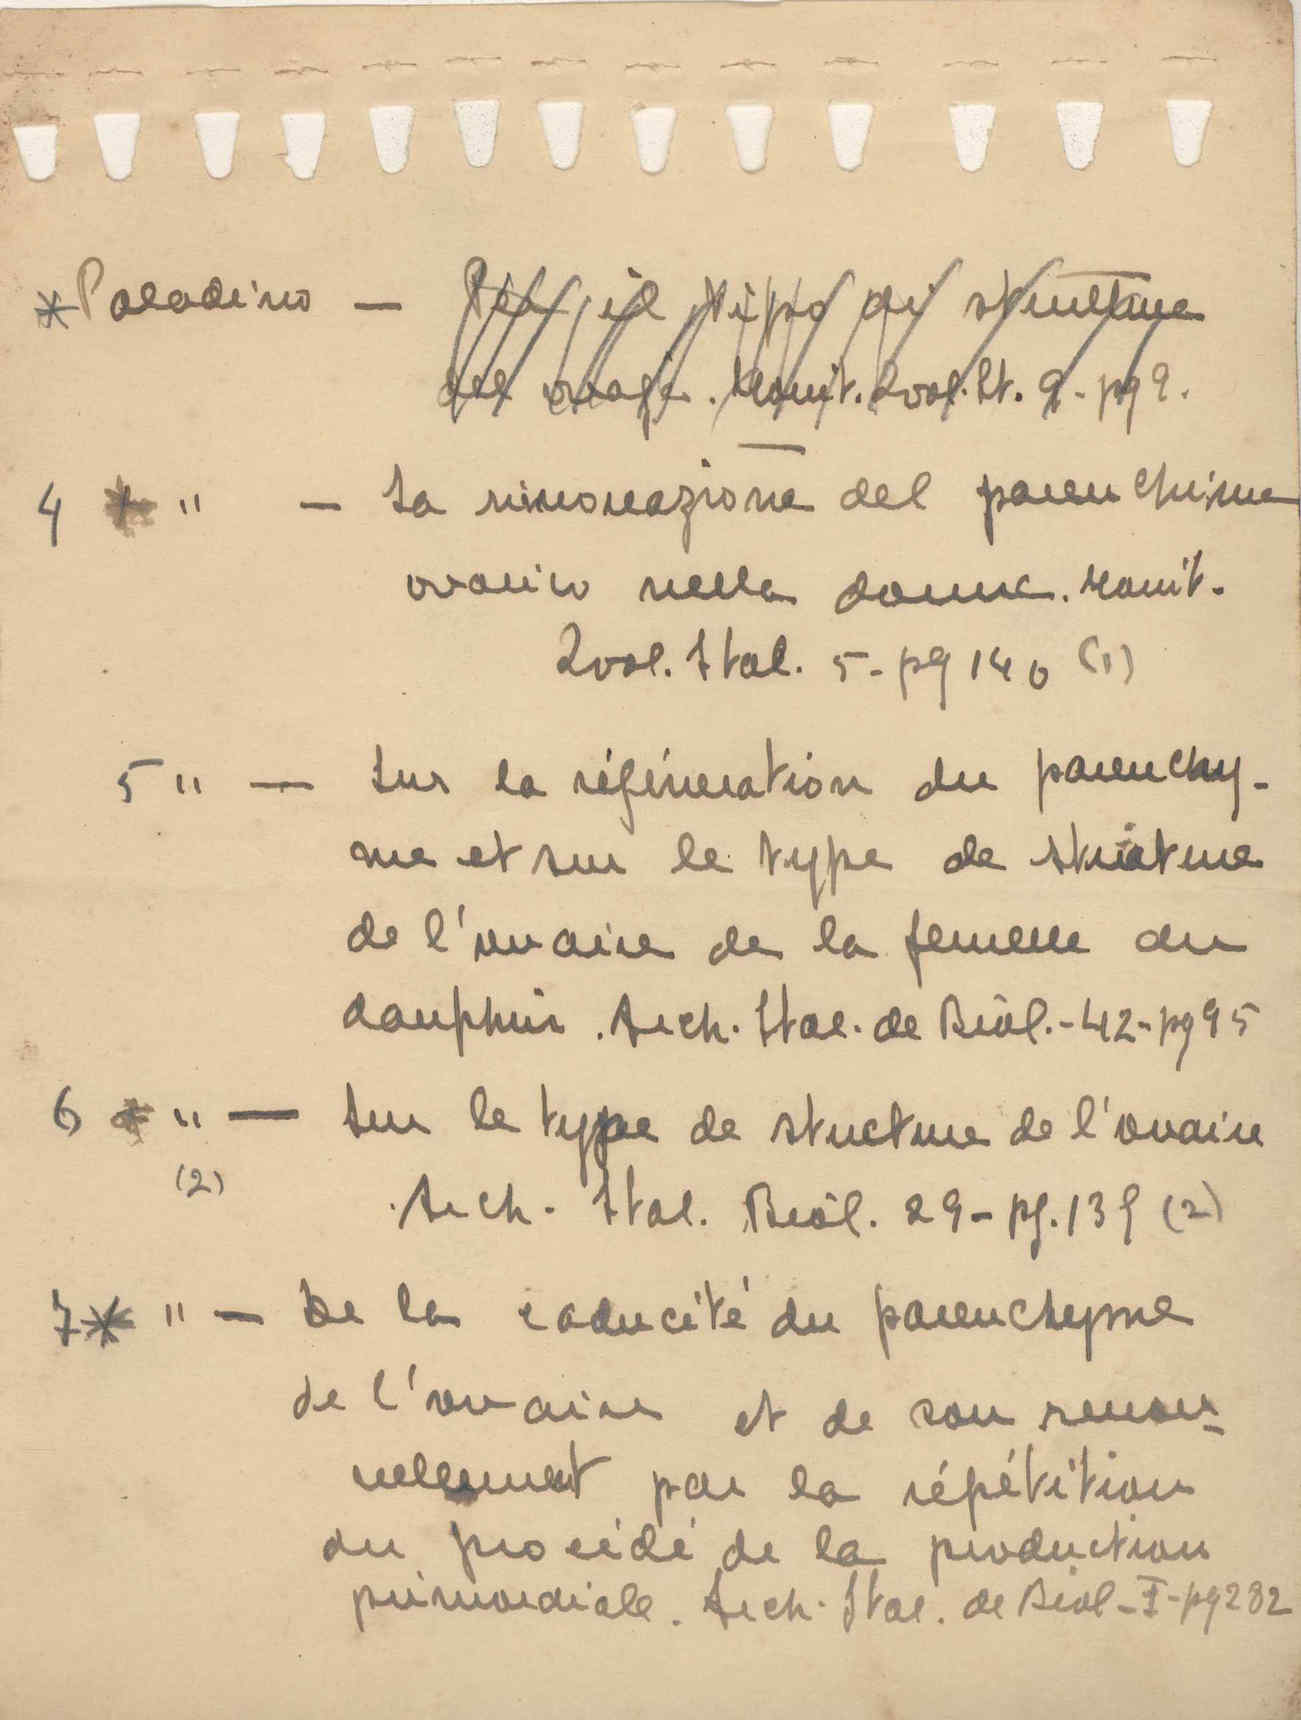 * Paladino — Per il tipo di struttura
del ovaja. Monit. Zool. It. 9 - pg 9.
4 * " — La rinnovazione del parenchima
ovarico nella donna. Monit.
Zool. Ital. 5 - pg 140 (1)
5 " — Sur la régéneration du parenchy-
me et sur le type de structure
de l'ovaire de la femelle du
dauphin. Arch. Ital. de Biol. - 42 - pg 95
6 * " — Sur le type de structure de l'ovaire
(2) Arch. Ital. Biol. 29 - pg. 139 (2)
7 * " — De la caducité du parenchyme
de l'ovaire et de son renou-
vellement par la répétition
du procédé de la production
primordiale. Arch. Ital. de Biol - I - pg 232